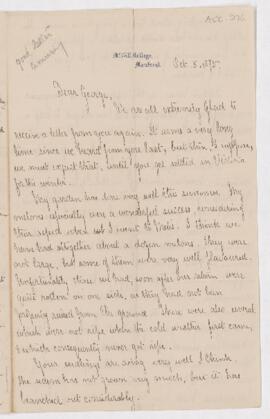 Acc. 276
McGill College,
Montreal.
Oct. 5, 1875.
Dear George,
We are all extremely glad to
receive a letter from you again. It seems a very long
time since we heard from you last, but then I suppose,
we must expect that, until you get settled in Victoria
for the winter.
My garden has done very well this summer. My
melons especially were a wonderful success, considering
their aspect when I went to Metis. I think we
have had altogether about a dozen melons. They were
not large, but some of them were very well flavoured.
Unfortunately those we had, soon after our return were
quite rotten on one side, as they had not been
raised from the ground. There were also several
which did not ripen while the cold weather first came,
& which consequently never got ripe.
Your seedlings are doing very well I think.
The has not grown very much, but it has
branched out considerably.